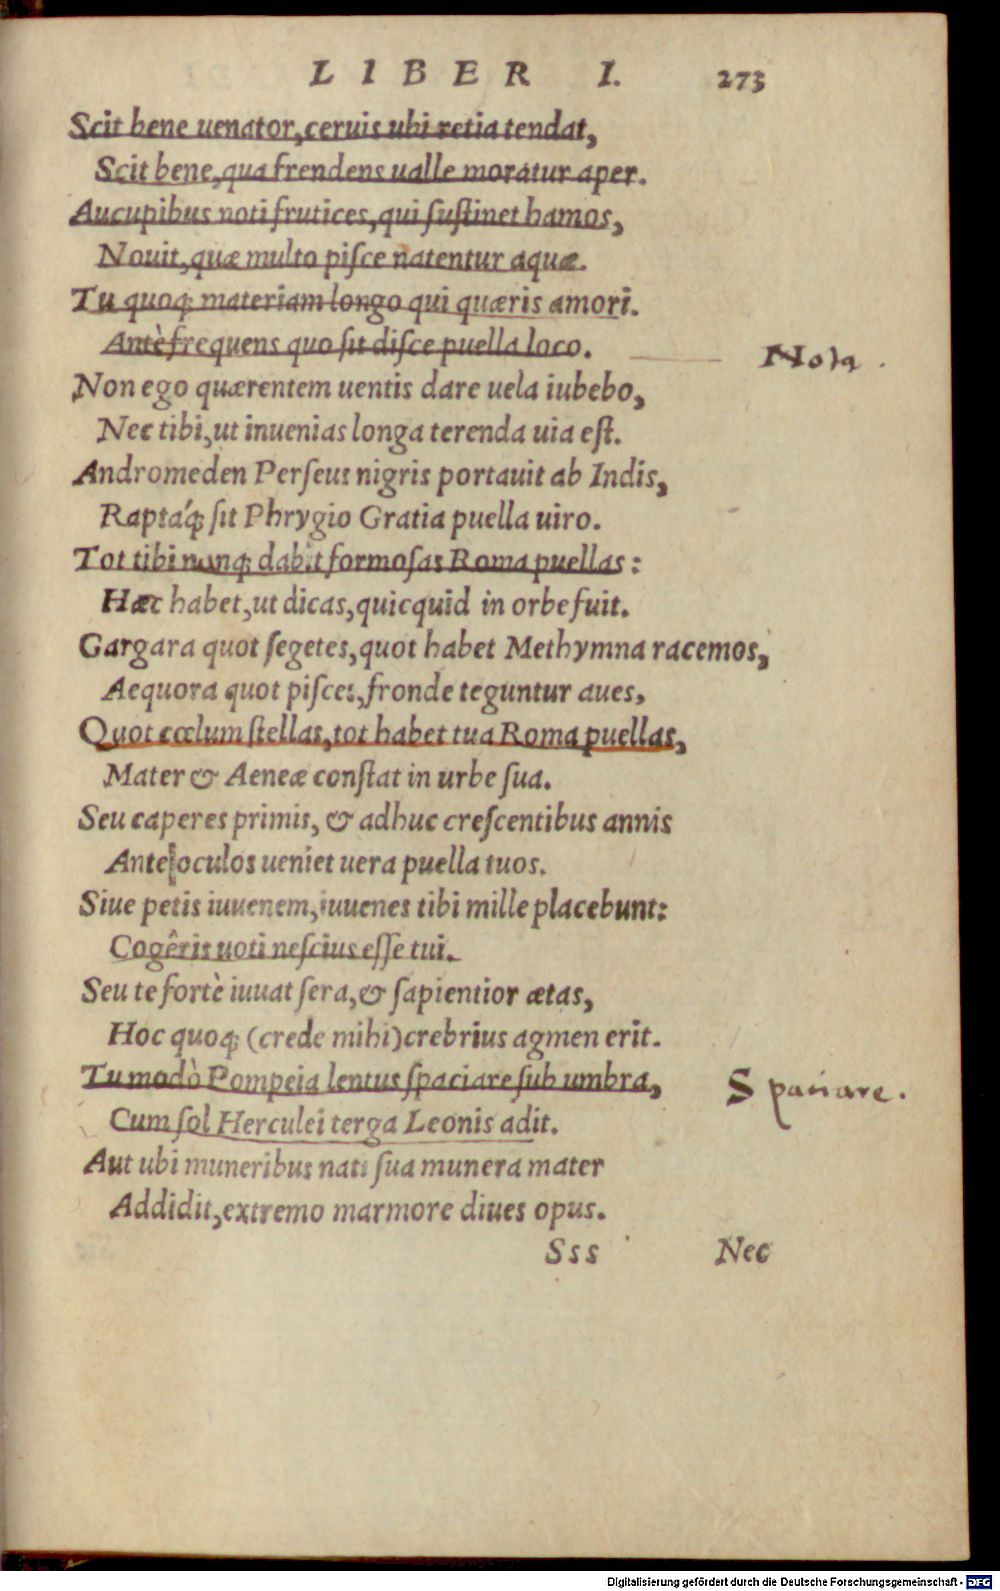 LIBER I. 273
Scit bene uenator, ceruis ubi retia tendat,
Scit bene, qua frendens ualle moratur aper.
Aucupibus noti frutices, qui ſuſtinet hamos,
Nouit, quæ multo piſce natentur aquæ.
Tu quoq; materiam longo qui quæris amori.
Antè frequens quo ſit diſce puella loco.
Nota.
Non ego quærentem uentis dare uela iubebo,
Nec tibi, ut inuenias longa terenda uia eſt.
Andromeden Perſeus nigris portauit ab Indis,
Raptáq; ſit Phrygio Gratia puella uiro.
Tot tibi nanq; dabit formoſas Roma puellas:
Hæc habet, ut dicas, quicquid in orbe fuit.
Gargara quot ſegetes, quot habet Methymna racemos,
Aequora quot piſces, fronde teguntur aues,
Quot cœlum ſtellas, tot habet tua Roma puellas,
Mater & Aeneæ conſtat in urbe ſua.
Seu caperes primis, & adhuc creſcentibus annis
Ante oculos ueniet uera puella tuos.
Siue petis iuuenem, iuuenes tibi mille placebunt:
Cogêris uoti neſcius eſſe tui.
Seu te fortè iuuat ſera, & ſapientior ætas,
Hoc quoq; (crede mihi) crebrius agmen erit.
Tu modò Pompeia lentus ſpaciare ſub umbra,
Spaciare.
Cum ſol Herculei terga Leonis adit.
Aut ubi muneribus nati ſua munera mater
Addidit, extremo marmore diues opus.
Sss Nec
Digitalisierung gefördert durch die Deutsche Forschungsgemeinschaft - DFG